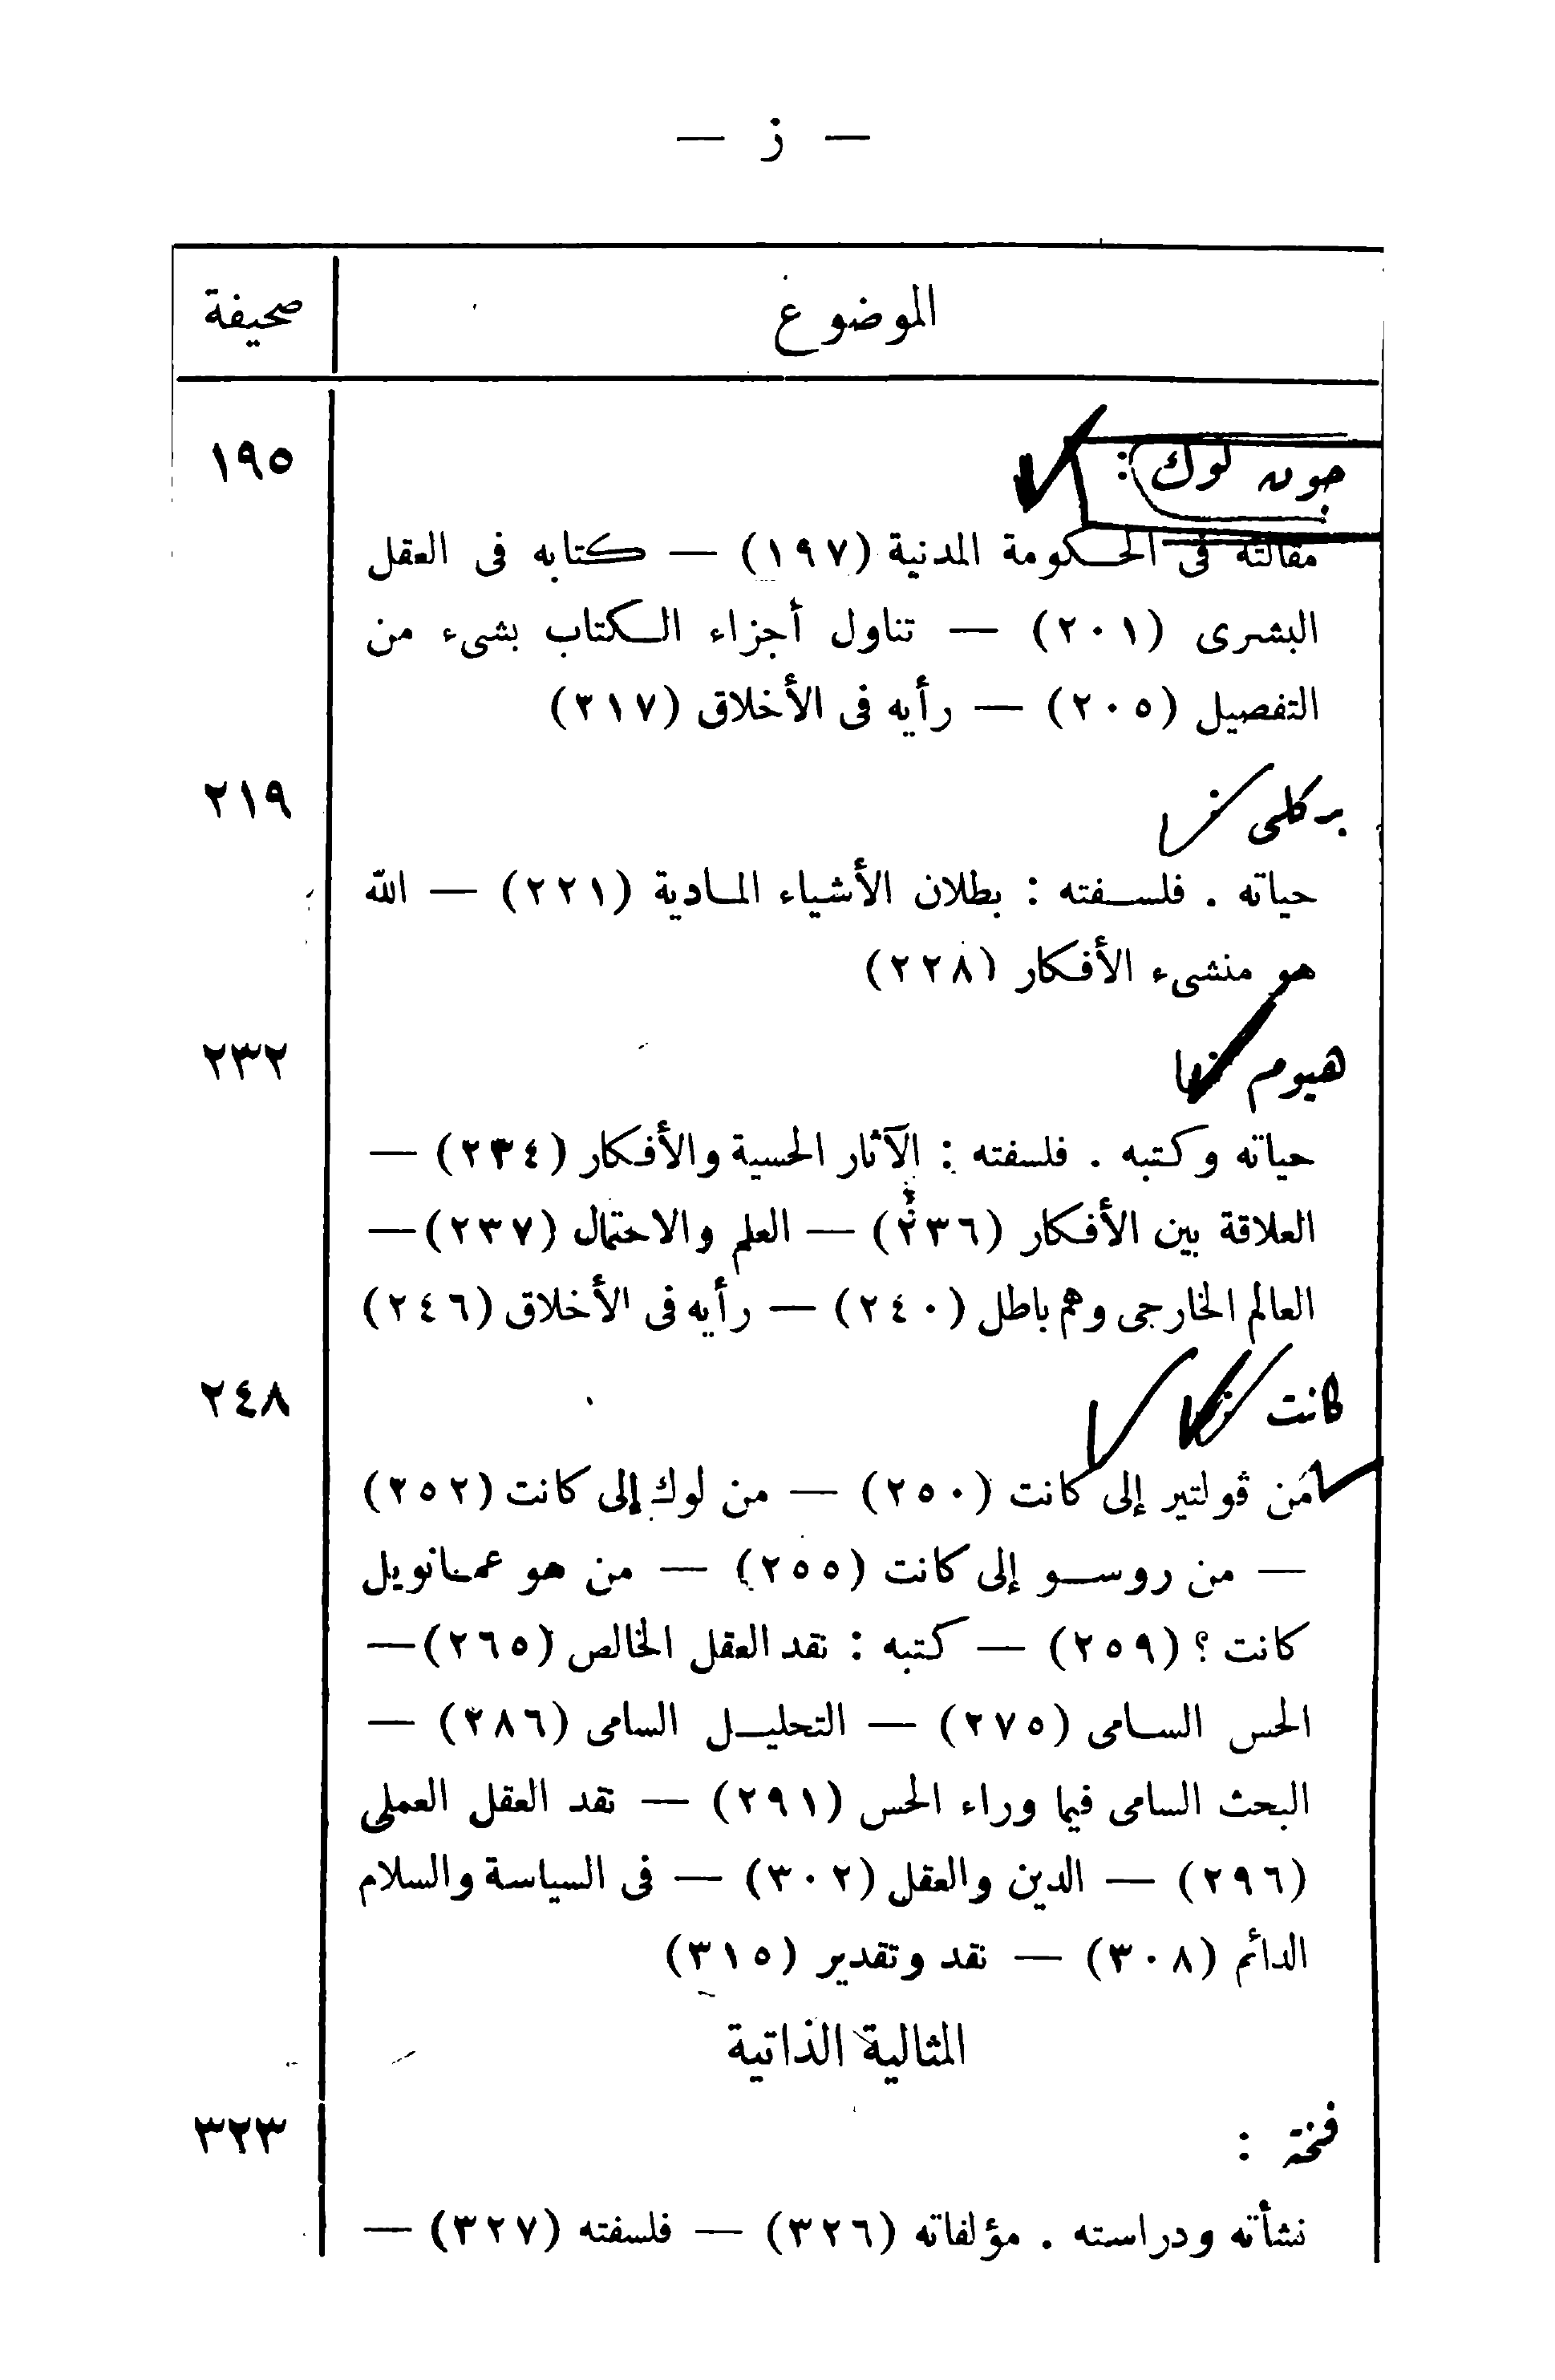 — ز —
الموضوع صحيفة
جون لوك : ١٩٥
مقالته فى الحكومة المدنية (١٩٧) — كتابه فى العقل
البشرى (٢٠١) — تناول أجزاء الكتاب بشىء من
التفصيل (٢٠٥) — رأيه فى الأخلاق (٣١٧)
بركلى : ٢١٩
حياته . فلسفته : بطلان الأشياء المادية (٢٢١) — الله
هو منشىء الأفكار (٢٢٨)
هيوم : ٢٣٢
حياته وكتبه . فلسفته : الآثار الحسية والأفكار (٢٣٤) —
العلاقة بين الأفكار (٢٣٦) — العلم والاحتمال (٢٣٧) —
العالم الخارجى وهم باطل (٢٤٠) — رأيه فى الأخلاق (٢٤٦)
كانت : ٢٤٨
من ڤولتير إلى كانت (٢٥٠) — من لوك إلى كانت (٢٥٢)
— من روسو إلى كانت (٢٥٥) — من هو عمانويل
كانت ؟ (٢٥٩) — كتبه : نقد العقل الخالص (٢٦٥) —
الحس السامى (٢٧٥) — التحليل السامى (٢٨٦) —
البحث السامى فيما وراء الحس (٢٩١) — نقد العقل العملى
(٢٩٦) — الدين والعقل (٣٠٢) — فى السياسة والسلام
الدائم (٣٠٨) — نقد وتقدير (٣١٥)
المثالية الذاتية
فختة : ٣٢٣
نشأته ودراسته . مؤلفاته (٣٢٦) — فلسفته (٣٢٧) —